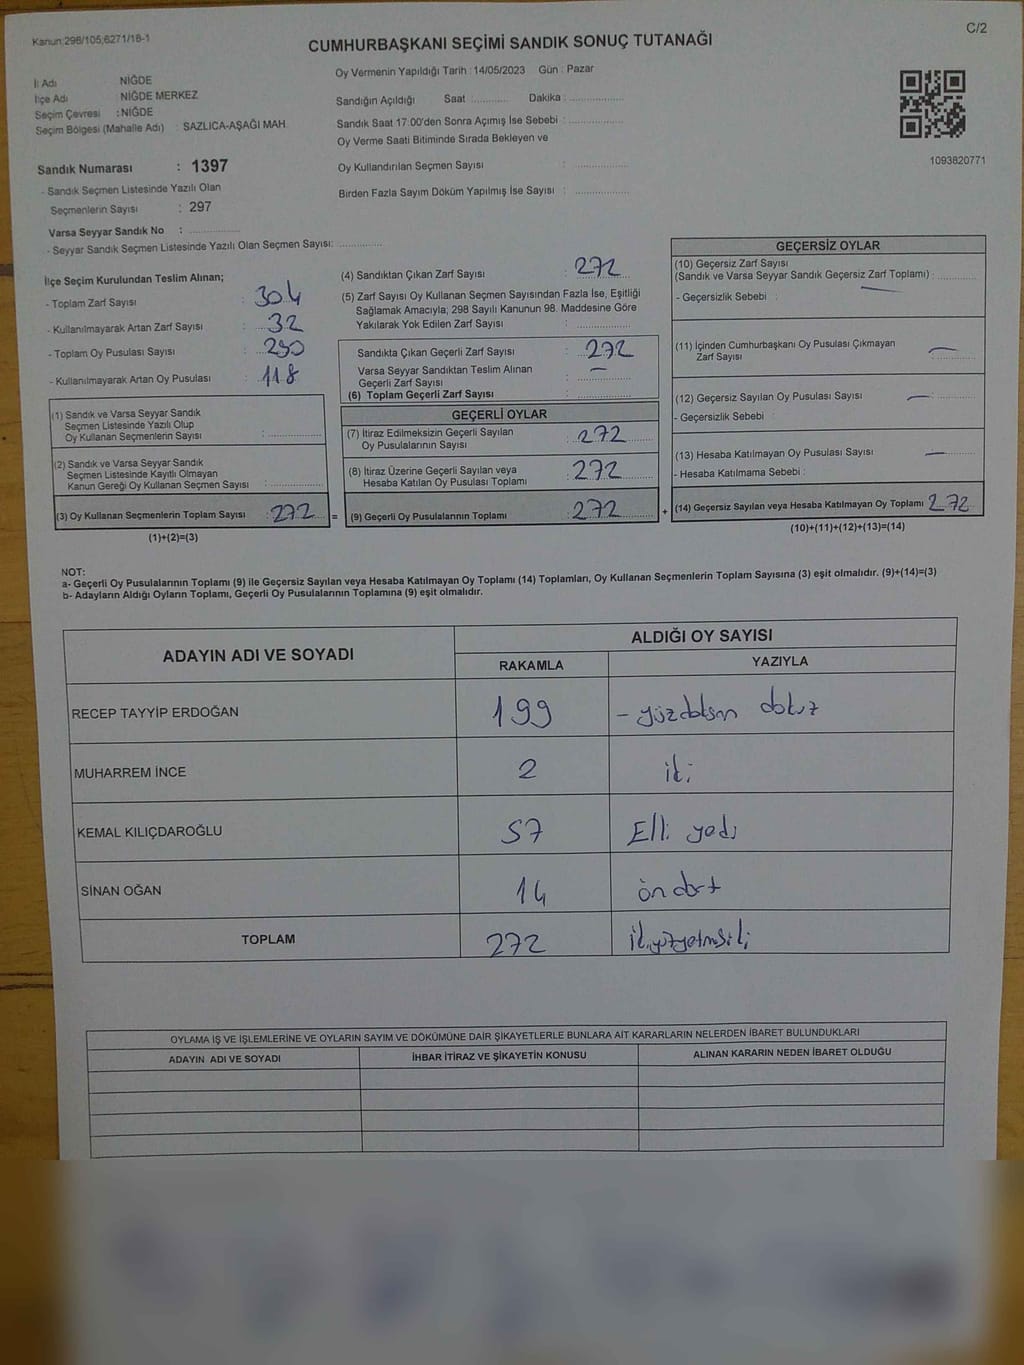 Kanun:298/105;6271/18-1
C/2
CUMHURBAŞKANI SEÇİMİ SANDIK SONUÇ TUTANAĞI
İl Adı NİĞDE
İlçe Adı : NİĞDE MERKEZ
Seçim Çevresi : NİĞDE
Seçim Bölgesi (Mahalle Adı) : SAZLICA-AŞAĞI MAH.
Sandık Numarası : 1397
- Sandık Seçmen Listesinde Yazılı Olan
Seçmenlerin Sayısı : 297
Varsa Seyyar Sandık No : ...................
- Seyyar Sandık Seçmen Listesinde Yazılı Olan Seçmen Sayısı: ...............
Oy Vermenin Yapıldığı Tarih : 14/05/2023 Gün : Pazar
Sandığın Açıldığı Saat ............. Dakika : ...................
Sandık Saat 17:00'den Sonra Açımış İse Sebebi : ...................
Oy Verme Saati Bitiminde Sırada Bekleyen ve
Oy Kullandırılan Seçmen Sayısı : ...................
Birden Fazla Sayım Döküm Yapılmış İse Sayısı : ...................
1093820771
İlçe Seçim Kurulundan Teslim Alınan;
- Toplam Zarf Sayısı : 304
- Kullanılmayarak Artan Zarf Sayısı : 32
- Toplam Oy Pusulası Sayısı :
- Kullanılmayarak Artan Oy Pusulası : 118
(1) Sandık ve Varsa Seyyar Sandık
Seçmen Listesinde Yazılı Olup
Oy Kullanan Seçmenlerin Sayısı : ...................
(2) Sandık ve Varsa Seyyar Sandık
Seçmen Listesinde Kayıtlı Olmayan
Kanun Gereği Oy Kullanan Seçmen Sayısı : ...................
(3) Oy Kullanan Seçmenlerin Toplam Sayısı : 272 =
(1)+(2)=(3)
(4) Sandıktan Çıkan Zarf Sayısı : 272
(5) Zarf Sayısı Oy Kullanan Seçmen Sayısından Fazla İse, Eşitliği
Sağlamak Amacıyla; 298 Sayılı Kanunun 98. Maddesine Göre
Yakılarak Yok Edilen Zarf Sayısı : ...................
Sandıkta Çıkan Geçerli Zarf Sayısı : 272
Varsa Seyyar Sandıktan Teslim Alınan
Geçerli Zarf Sayısı : —
(6) Toplam Geçerli Zarf Sayısı : ...................
GEÇERLİ OYLAR
(7) İtiraz Edilmeksizin Geçerli Sayılan
Oy Pusulalarının Sayısı : 272
(8) İtiraz Üzerine Geçerli Sayılan veya
Hesaba Katılan Oy Pusulası Toplamı : 272
(9) Geçerli Oy Pusulalarının Toplamı : 272 +
GEÇERSİZ OYLAR
(10) Geçersiz Zarf Sayısı
(Sandık ve Varsa Seyyar Sandık Geçersiz Zarf Toplamı) : —
- Geçersizlik Sebebi :
(11) İçinden Cumhurbaşkanı Oy Pusulası Çıkmayan
Zarf Sayısı : —
(12) Geçersiz Sayılan Oy Pusulası Sayısı : —
- Geçersizlik Sebebi :
(13) Hesaba Katılmayan Oy Pusulası Sayısı : —
- Hesaba Katılmama Sebebi :
(14) Geçersiz Sayılan veya Hesaba Katılmayan Oy Toplamı 272
(10)+(11)+(12)+(13)=(14)
NOT:
a- Geçerli Oy Pusulalarının Toplamı (9) ile Geçersiz Sayılan veya Hesaba Katılmayan Oy Toplamı (14) Toplamları, Oy Kullanan Seçmenlerin Toplam Sayısına (3) eşit olmalıdır. (9)+(14)=(3)
b- Adayların Aldığı Oyların Toplamı, Geçerli Oy Pusulalarının Toplamına (9) eşit olmalıdır.
ADAYIN ADI VE SOYADI
ALDIĞI OY SAYISI
RAKAMLA YAZIYLA
RECEP TAYYİP ERDOĞAN 199 - yüzdoksan dokuz
MUHARREM İNCE 2 iki
KEMAL KILIÇDAROĞLU 57 Elli yedi
SİNAN OĞAN 14 ön dört
TOPLAM 272 ikiyüzyetmişiki
OYLAMA İŞ VE İŞLEMLERİNE VE OYLARIN SAYIM VE DÖKÜMÜNE DAİR ŞİKAYETLERLE BUNLARA AİT KARARLARIN NELERDEN İBARET BULUNDUKLARI
ADAYIN ADI VE SOYADI İHBAR İTİRAZ VE ŞİKAYETİN KONUSU ALINAN KARARIN NEDEN İBARET OLDUĞU